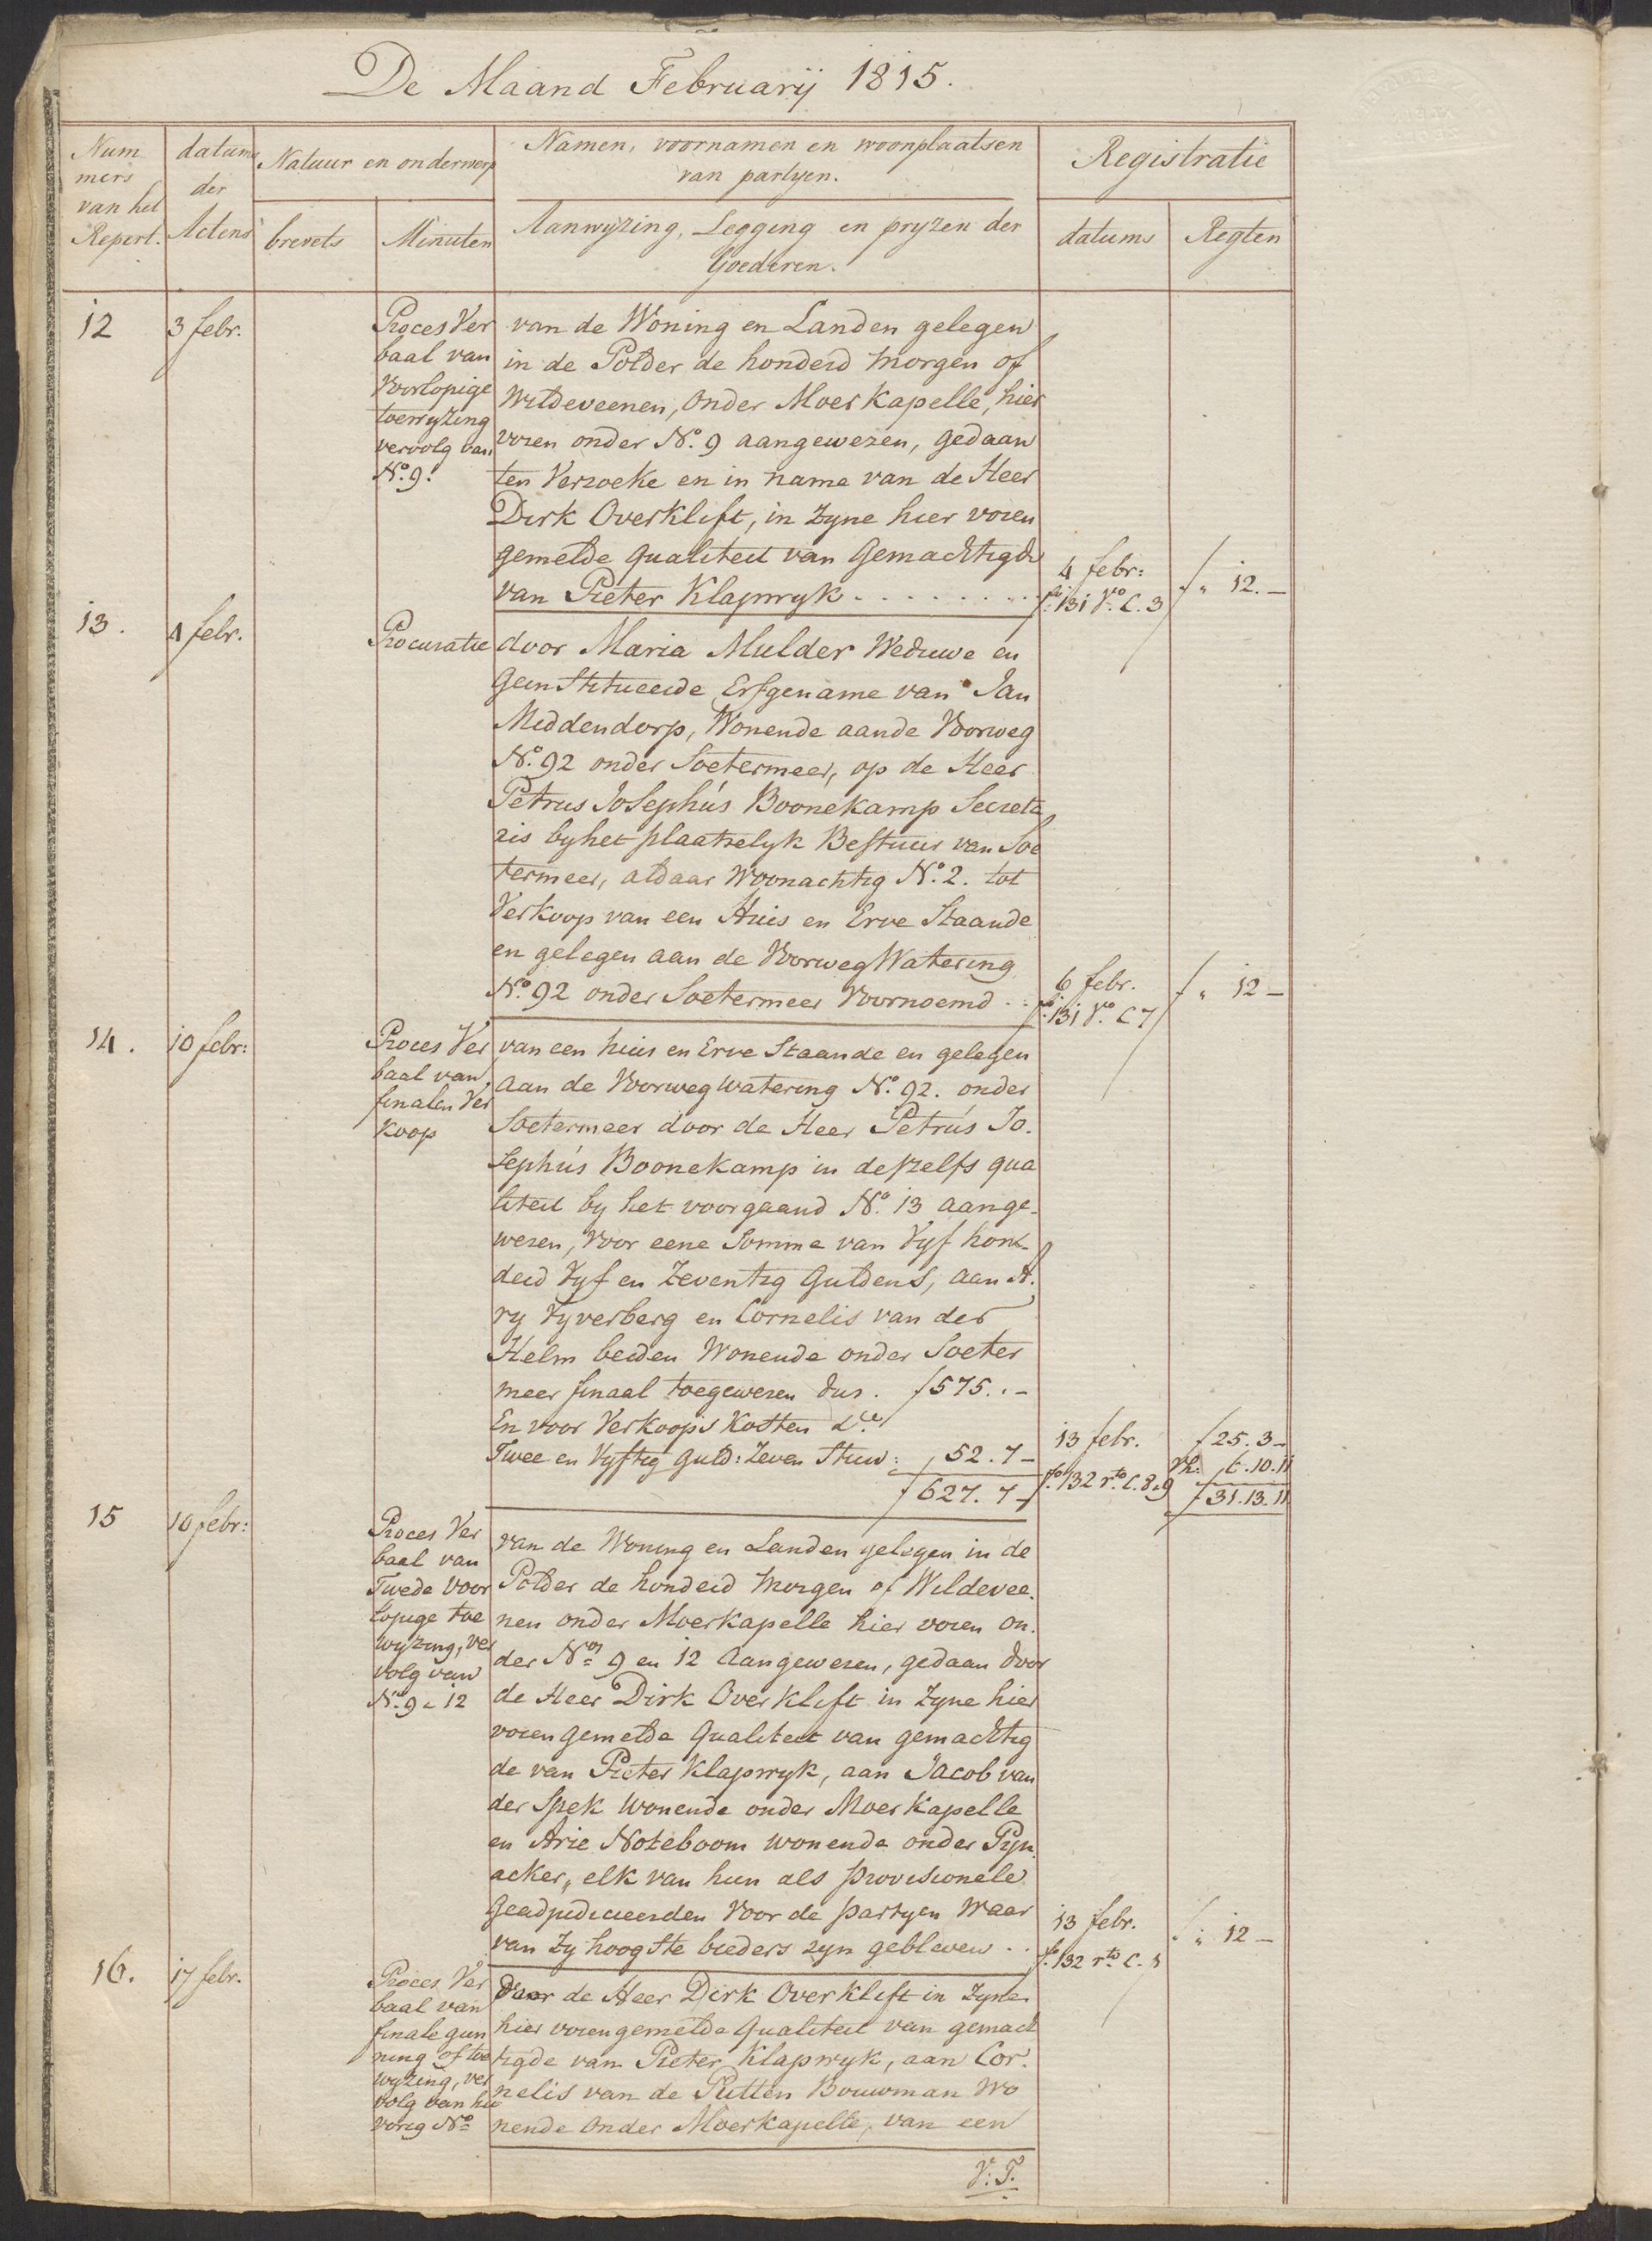 De Maand Februarij 1815.
Num
mers
van het
Repert.
datums
der
Actens
Natuur en onderwerp
brevets
Minuten
Namen, voornamen en woonplaatsen
van partyen.
Aanwyzing, Legging en pryzen der
Goederen.
Registratie
datums
Regten
12
3 febr.
Proces Ver
baal van
Voorlopige
toewyzing
vervolg van
No. 9.
van de Woning en Landen gelegen
in de Polder de honderd morgen of
Wildeveenen, onder Moerkapelle, hier
voren onder No. 9 aangewezen, gedaan
ten Verzoeke en in name van de Heer
Dirk Overklift, in Zyne hier voren
gemelde qualiteit van Gemachtigde
van Pieter Klapwyk . . . . . . . . .
4 febr:
fo. 131 Vo. C. 3
f " 12. –
13.
4 febr.
Procuratie
door Maria Mulder Weduwe en
Geinstitueerde Erfgename van Jan
Middendorp, Wonende aande Voorweg
No. 92 onder Soetermeer, op de Heer
Petrus Josephus Boonekamp Secreta
ris by het plaatselyk Bestuur van Soe
termeer, aldaar Woonachtig No. 2. tot
Verkoop van een Huis en Erve Staande
en gelegen aan de Voorweg Watering
No. 92 onder Soetermeer Voornoemd . .
6 febr.
fo. 131 Vo. C 7
f " 12 –
14.
10 febr:
Proces Ver
baal van
finalen Ver
koop
van een huis en Erve Staande en gelegen
aan de Voorweg watering No. 92. onder
Soetermeer door de Heer Petrus Jo.
sephus Boonekamp in deszelfs qua
liteit by het voorgaand No. 13 aange-
wezen, Voor eene Somme van Vyf hon-
derd Vyf en Zeventig Guldens, aan A.
ry Vyverberg en Cornelis van der
Helm beiden Wonende onder Soeter
meer finaal toegewezen dus . f 575. " –
En voor Verkoops Kosten &ca
Twee en Vyftig Guld: Zeven Stuiv: " 52. 7 –
f 627. 7 –
13 febr.
fo. 132 rto. C. 8 & 9
f 25. 3 –
Vh: 6. 10. 11
f 31. 13. 11
15
10 febr:
Proces Ver
baal van
Twede Voor
lopige toe
wyzing, ver
volg van
No. 9 & 12
van de Woning en Landen gelegen in de
Polder de honderd morgen of Wildevee.
nen onder Moerkapelle hier voren on.
der Nos. 9 en 12 aangewezen, gedaan door
de Heer Dirk Overklift in Zyne hier
voren gemelde Qualiteit van gemachtig
de van Pieter Klapwyk, aan Jacob van
der Spek wonende onder Moerkapelle
en Arie Noteboom wonende onder Pyn
acker, elk van hun als Provisionele
Geadjudiceerden Voor de partyen waar
van Zy hoogste bieders zyn gebleven . .
13 febr.
fo. 132 rto. C.
f " 12 –
16.
17 febr.
Proces Ver
baal van
finale gun
ning of toe
wyzing, ver
volg van het
vorig No.
Door de Heer Dirk Overklift in Zyne
hier vorengemelde Qualiteit van gemach
tigde van Pieter Klapwyk, aan Cor.
nelis van de Putten Bouwman Wo
nende onder Moerkapelle, van een
V: T.